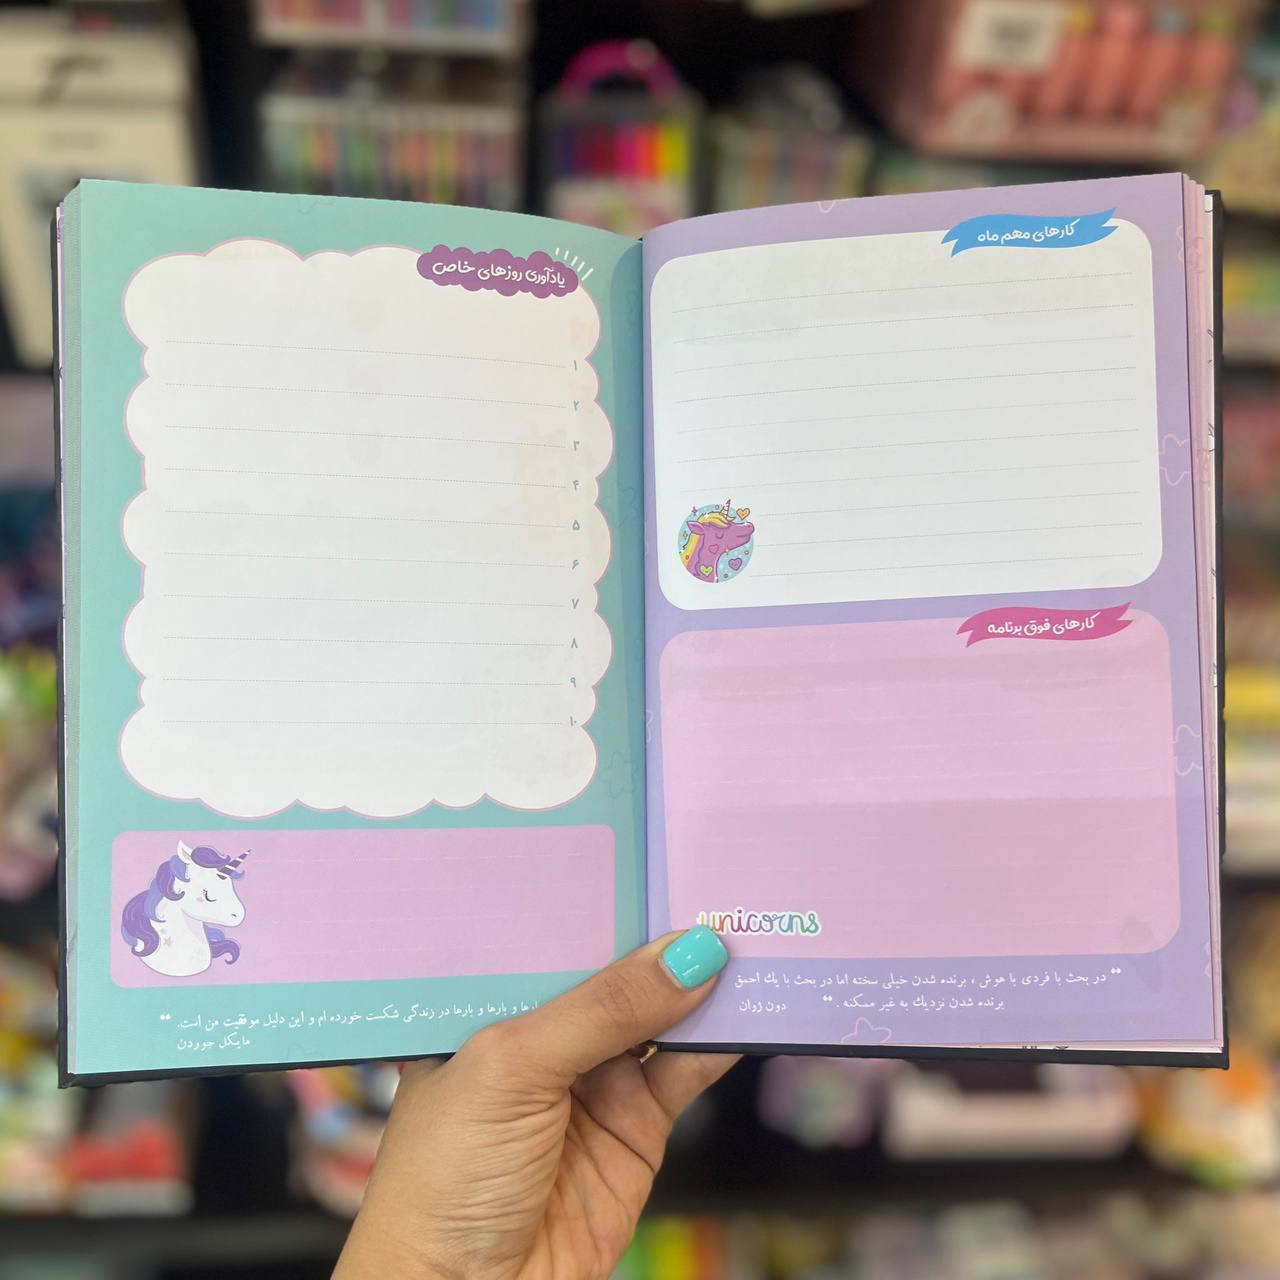 کارهای مهم ماه
کارهای فوق برنامه
unicorns
در بحث با فردی با هوش ، برنده شدن خیلی سخته اما در بحث با یك احمق
برنده شدن نزدیك به غیر ممکنه .
دون ژوان
یادآوری روزهای خاص
۱
۲
۳
۴
۵
۶
۷
۸
۹
۱۰
بارها و بارها و بارها در زندگی شکست خورده ام و این دلیل موفقیت من است.
مایکل جوردن